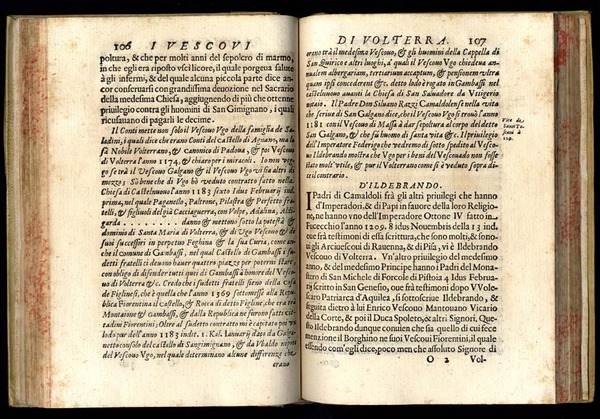 106 I VESCOVI
poltura, & che per molti anni del sepolcro di marmo,
in che egli era riposto vscì licore, il quale porgeua salute
à gli infermi, & del quale alcuna piccola parte dice an-
cor conseruarsi con grandissima deuotione nel Sacrario
della medesima Chiesa, aggiugnendo di più che ottenne
priuilegio contra gli huomini di San Gimignano, i quali
ricusauano di pagarli le decime.
Il Conti mette non solo il Vescouo Vgo della famiglia de Sa-
ladini, i quali dice che erano Cōti del Castello di Agnano, ma lo
fà Nobile Volterrano, & Canonico di Padoua, & poi Vescouo
di Volterra l'anno 1174. & chiaro per i miracoli. Io non veg-
go se trà il Vescouo Galgano & il Vescouo Vgo vi sia altri di
mezzo; Sò bene che di Vgo hò veduto contratto fatto nella
Chiesa di Castelnuouo l'anno 1183 sixto Idus Februarij ind.
prima, nel quale Paganello, Paltrone, Pilastra & Perfetto fra-
telli, & figliuoli del già Cacciaguerra, con Volpe, Aldina, Aldi-
garda danno & mettono sotto la potestà &
dominio di Santa Maria di Volterra, & di Vgo Vescouo & de
suoi successori in perpetuo Feghina & la sua Curia, come an-
che il comune di Gambassi, nel qual Castello di Gambassi i su-
detti fratelli ci deuono hauer quattro piazze per poterui stare,
con obligo di difender tutti quei di Gambassi à honore del Vesco-
uo di Volterra &c. Credo che i sudetti fratelli sieno della Casa
de Figlinesi, che è quella che l'anno 1369 sottomesse alla Repu.
Fiorentina il Castello, & Rocca di detto Figline, che era trà
Montaione & Gambassi, & dalla Republica ne furono fatti cit-
tadini Fiorentini; Oltre al sudetto contratto mi è capitato vn
lodo pur dell'anno 1183 indit. 1. Kal. Ianuarij dato da Gugliel-
netto consolo del castello di Sangimignano, & da Vbaldo nipote
del Vescouo Vgo, nel quale determinano alcune differenze che
erano
DI VOLTERRA. 107
erano trà il medesimo Vescouo, & gli huomini della Cappella di
San Quirico e altri luoghi, a' quali il Vescouo Vgo chiedeua an-
nualem albergariam, tertiarium acceptum, & pensionem vltra
quam ipsi concederent &c. detto lodo è rogato in Gambassi nel
castelnuouo auanti la Chiesa di San Saluadore da Vitigeria
notaio. Il Padre Don Siluano Razzi Camaldolense nella vita
che scriue di San Galgano dice, che il Vescouo Vgo si trouò l'anno
1181 con il Vescouo di Massa à dar sepoltura al corpo del detto
San Galgano, & che fù huomo di santa vita &c. Il priuilegio
dell'Imperatore Federigo che vedremo di sotto spedito al Vesco-
uo Ildebrando mostra che Vgo per i beni del Vescouado non fosse
stato molt'vtile, & pur il Volterrano come si è veduto sopra di-
ce il contrario.
D'ILDEBRANDO.
I Padri di Camaldoli frà gli altri priuilegi che hanno
d'Imperadori, & di Papi in fauore della loro Religio-
ne, ne hanno vno dell'Imperatore Ottone IV fatto in
Fucecchio l'anno 1209. 8 idus Nouembris della 13 ind.
oue frà testimoni di essa scrittura, che sono molti, & sono-
ui gli Arciuescoui di Rauenna, & di Pisa, vi è Ildebrando
Vescouo di Volterra. Vn'altro priuilegio del medesimo
anno, & del medesimo Principe hanno i Padri del Mona-
stero di San Michele di Forcole di Pistoia 4 Idus Februa-
rij scritto in San Genesio, oue frà testimoni dopo VVol-
scaro Patriarca d'Aquilea, si sottoscriue Ildebrando, &
seguita dietro à lui Enrico Vescouo Mantouano Vicario
della Corte, & poi il Duca Spoleto, & altri Signori. Que-
sto Ildebrando dunque conuien che sia quello di cui fece
menzione il Borghino ne suoi Vescoui Fiorentini, il quale
essendo com'egli dice, poco men che assoluto Signore di
O 2 Vol-